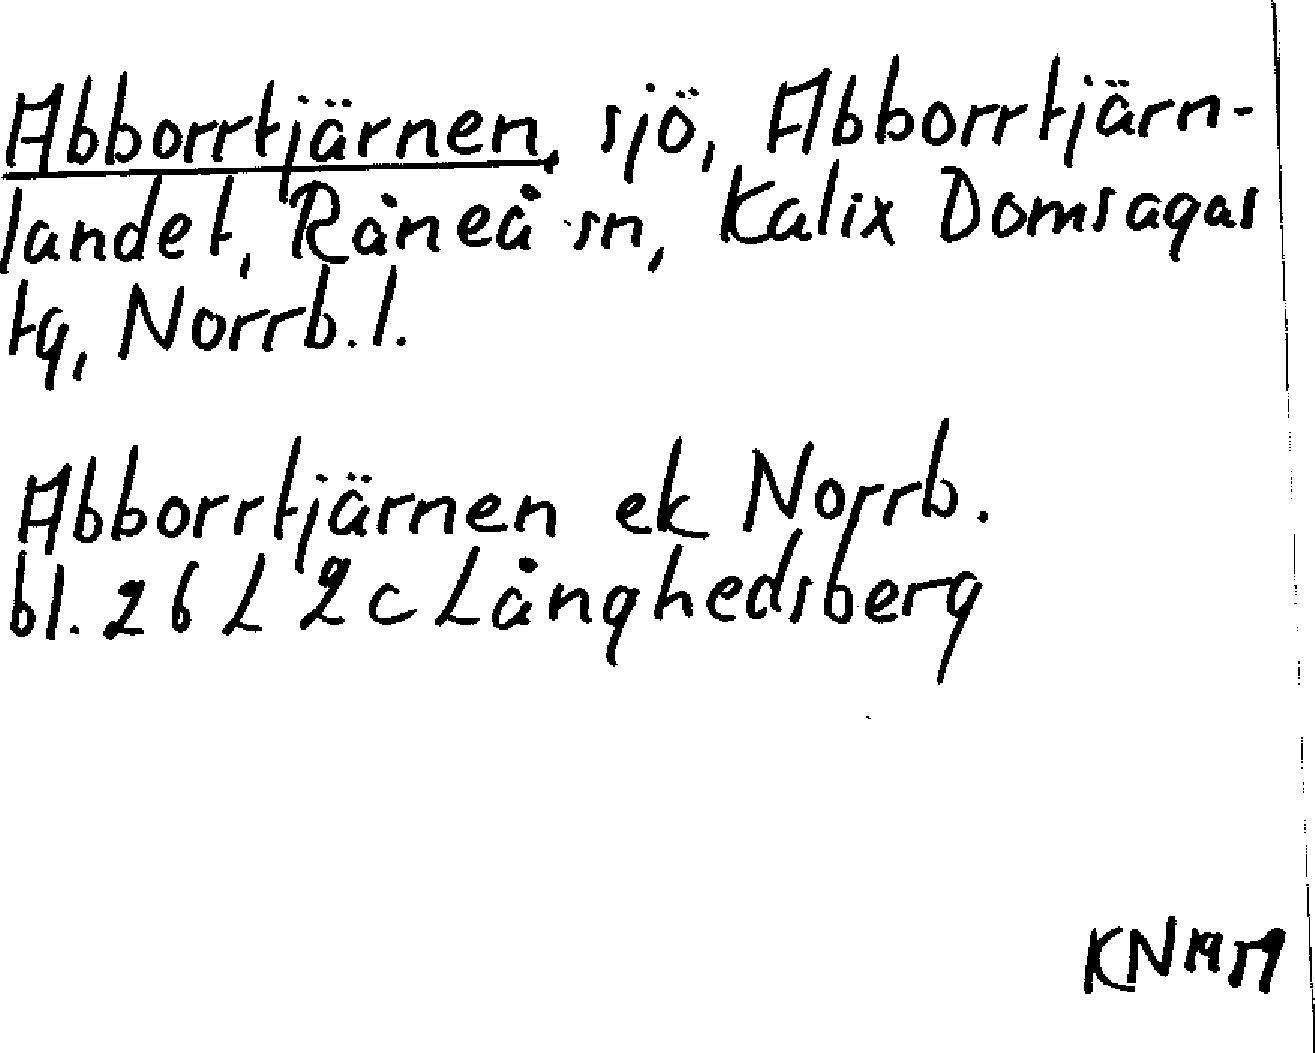 Abborrtjärnen, sjö, Abborrtjärn-
landet, Råneå sn, Kalix Domsagas
tg, Norrb. l.
Abborrtjärnen ek Norrb.
bl. 26 L 2 c Långhedsberg
KN 1959